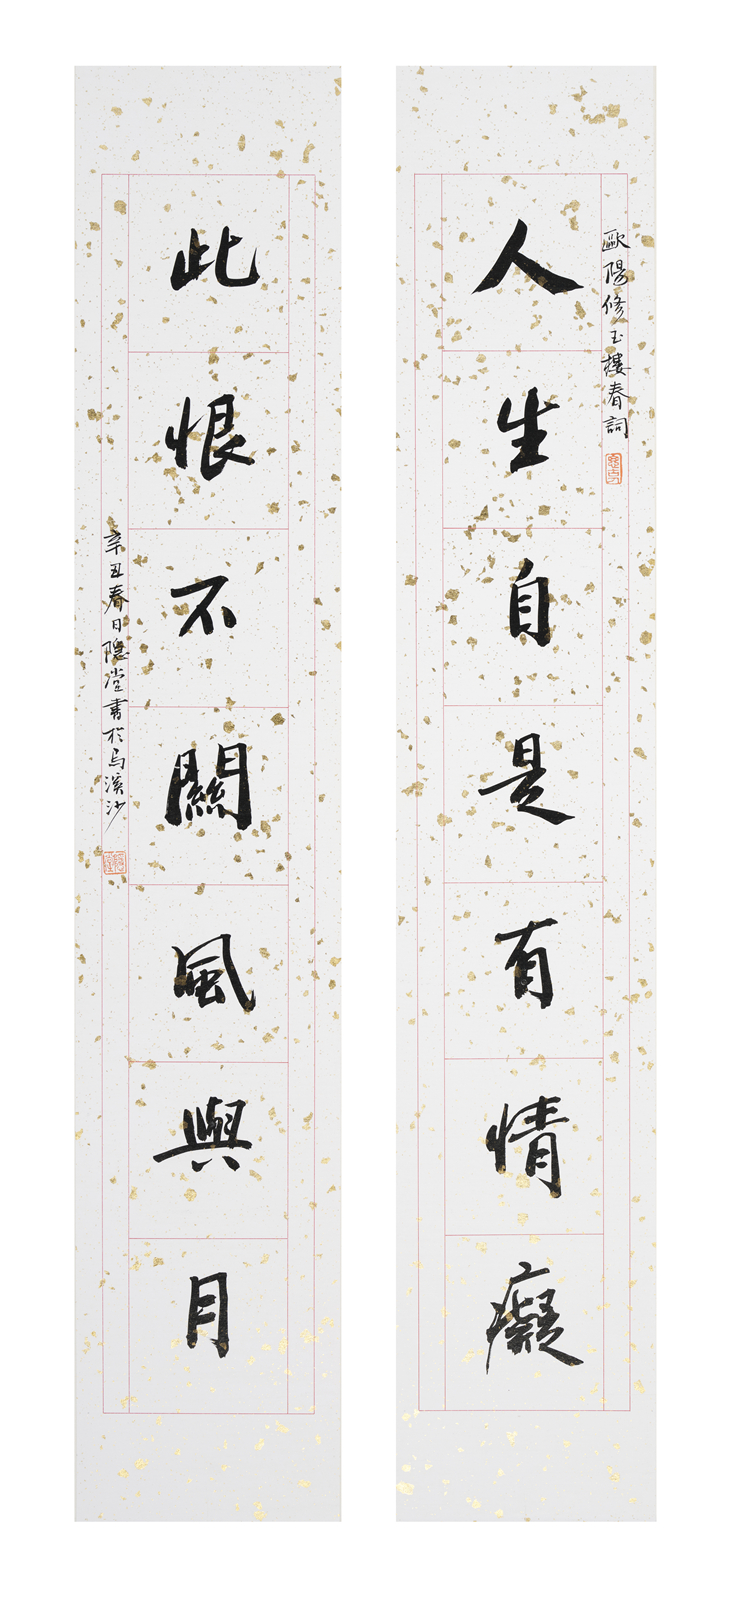 歐陽修玉樓春詞
人生自是有情癡
此恨不關風與月
辛丑春日隱堂書於烏溪沙